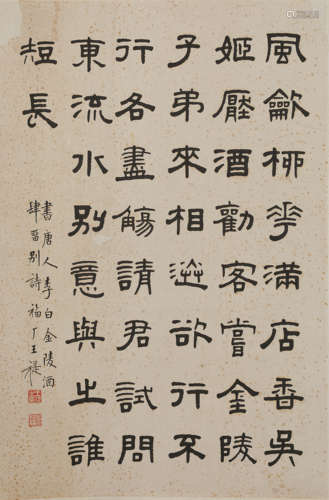 風龡桺華滿店香吳
姬壓酒勸客嘗金陵
子弟來相送欲行不
行各盡觴請君試問
東流水別意與之誰
短長
書唐人李白金陵酒
肆畱別詩 福丁王禔